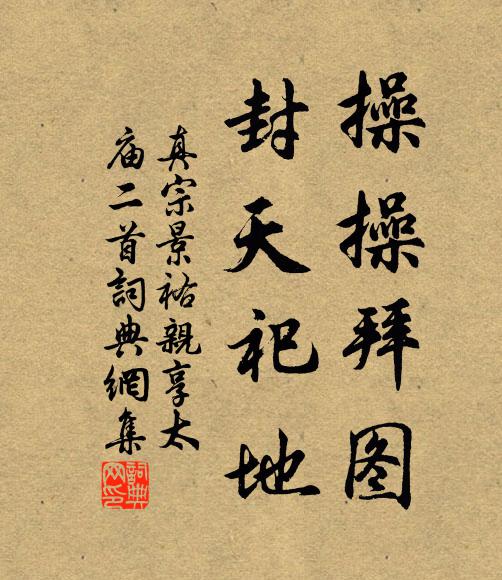 操操拜图
封天祀地
真宗景祐親享太
庙二首詞典網集
詞典
网印